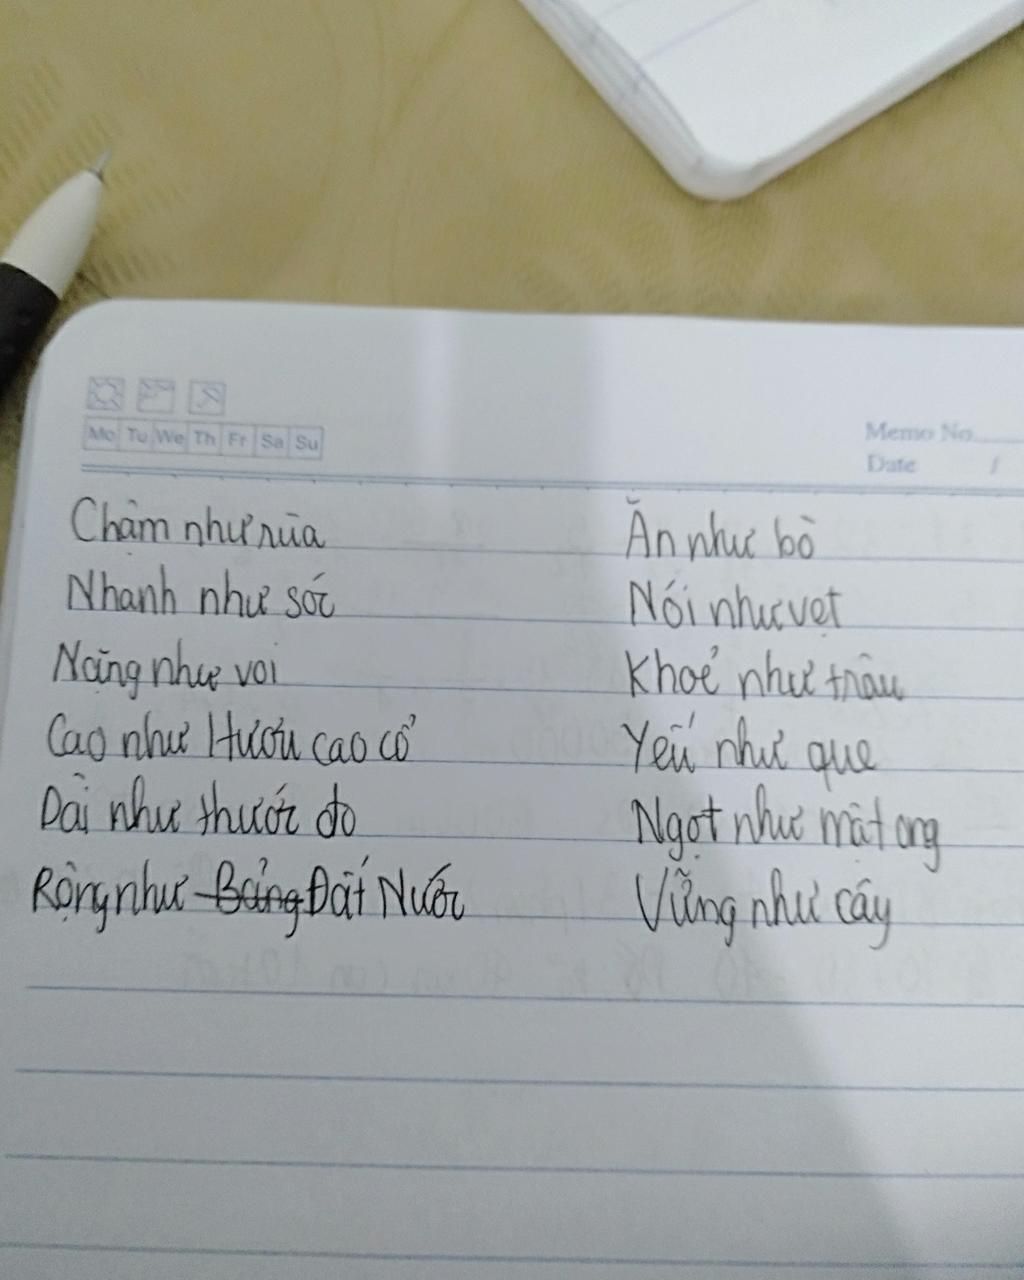 Mo Tu We Th Fr Sa Su
Memo No.
Date /
Chậm như rùa
Nhanh như sóc
Nặng như voi
Cao như Hươu cao cổ
Dài như thước đo
Rộng như Bảng Đất Nước
Ăn như bò
Nói như vẹt
Khoẻ như trâu
Yếu như que
Ngọt như mật ong
Vững như cây